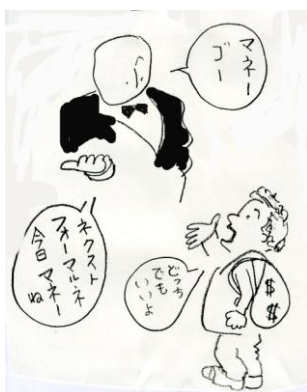 マネー
ゴー
ネクスト
フォーマルネ
今日 マネー
ね
どっち
でも
いいよ
$ $